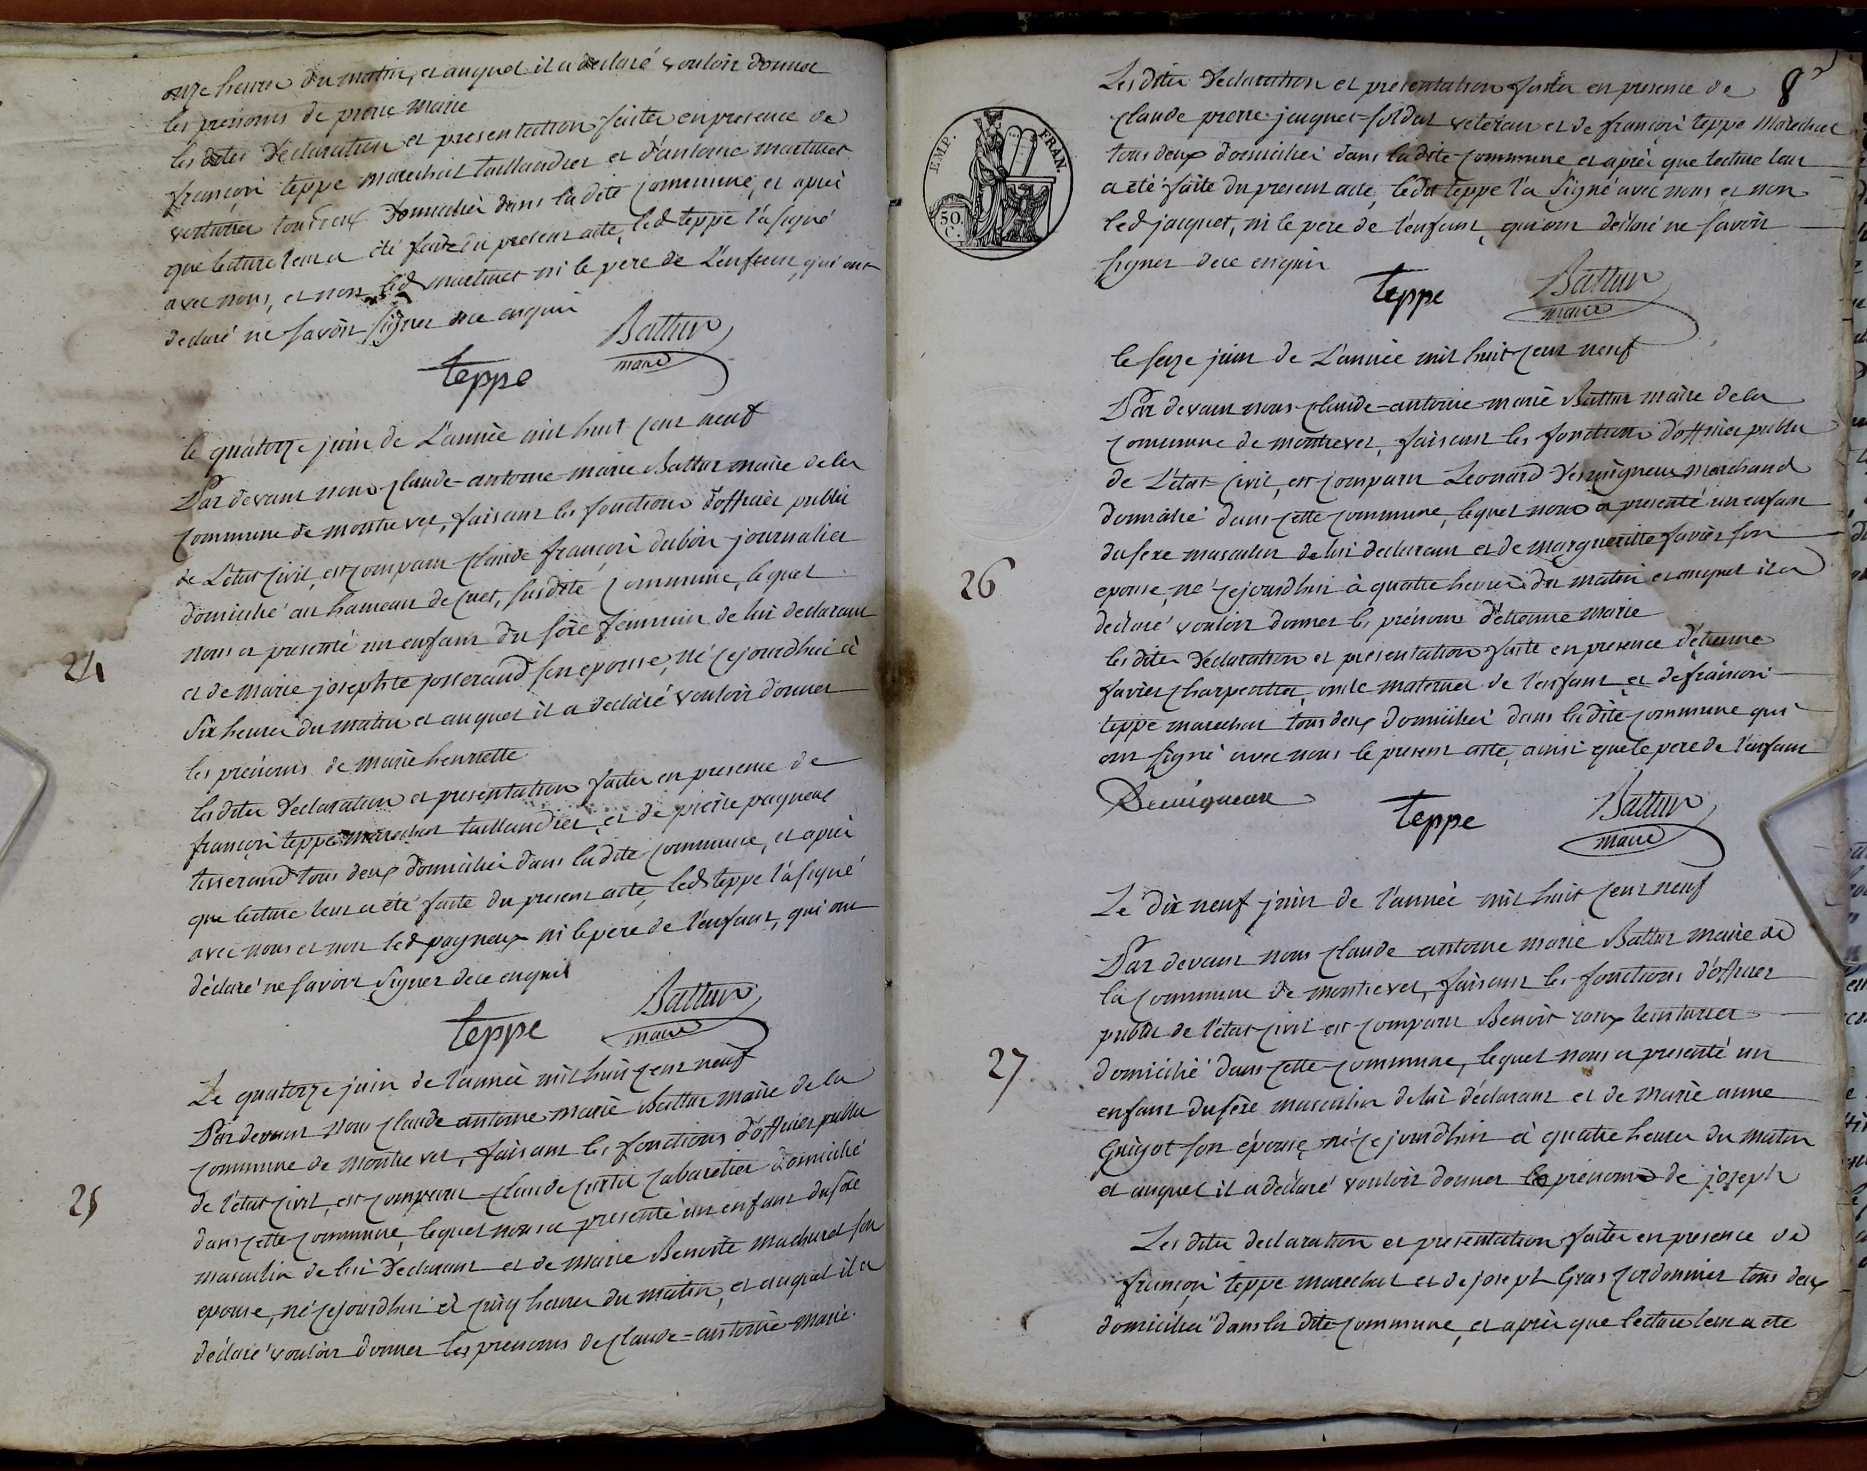 onze heures du matin, et auquel il a declaré vouloir donner
les prenoms de pierre marie
les dites declaration et presentation faites en presence de
françois teppe marechal taillandier et d'antoine martinet
tous deux domiciliés dans la dite commune, et après
que lecture leur a été faite du present acte, led teppe l'a signé
avec nous, et non led martinet ni le pere de l'enfant, qui ont
declaré ne savoir signer de ce enquis
teppe Battur
maire
le quatorze juin de L'année mil huit cent neuf
Par devant nous claude-antoine-marie Battur maire de la
commune de montrevel, faisant les fonctions d'officier public
de L'état civil, est comparu claude françois dubois journalier
domicilié au hameau de cuet, susdite commune, lequel
nous a presenté un enfant du sexe feminin de lui declarant
24
et de marie josephte josserand son epouse, né cejourdhui à
six heures du matin et auquel il a declaré vouloir donner
les prénoms de marie henriette
les dites declaration et presentation faites en presence de
françois teppe marechal taillandier, et de pierre pagneux
tisserand tous deux domiciliés dans la dite commune, et après
que lecture leur a été faite du present acte, led teppe l'a signé
avec nous et non led pagneux ni le pere de l'enfant, qui ont
déclaré ne savoir signer de ce enquis
teppe Battur
maire
Le quatorze juin de l'année mil huit cent neuf
Par devant nous claude antoine marie Battur maire de la
commune de montrevel, faisant les fonctions d'officier public
de l'état civil, est comparu claude curtil cabaretier domicilié
25
dans cette commune, lequel nous a presenté un enfant du sexe
masculin de lui declarant et de marie Benoite machurel son
epouse, né cejourdhui à cinq heures du matin, et auquel il a
déclaré vouloir donner les prenoms de claude=antoine-marie.
8
Les dites declaration et presentation faites en presence de
claude pierre jacquet soldat veteran et de françois teppe marechal
tous deux domiciliés dans la dite commune et après que lecture leur
a été faite du present acte, ledit teppe l'a signé avec nous et non
led jacquet, ni le pere de l'enfant, qui ont déclaré ne savoir
signer de ce enquis
EMP. FRAN.
50.
C.
teppe Battur
maire
le seize juin de L'année mil huit cent neuf
Par devant nous claude=antoine-marie Battur maire de la
commune de montrevel, faisant les fonctions d'officier public
de L'état civil, est comparu Leonard Desvigneux marchand
domicilié dans cette commune, lequel nous a presenté un enfant
du sexe masculin de lui declarant et de marguerite favier son
26
epouse, né cejourdhui à quatre heures du matin et auquel il a
declaré vouloir donner les prénoms d'etienne marie
les dites declaration et presentation faite en presence d'étienne
favier charpentier, oncle maternel de l'enfant et de françois
teppe marechal tous deux domiciliés dans la dite commune qui
ont signé avec nous le present acte, ainsi que le pere de l'enfant
teppe Battur
maire
Le dix neuf juin de l'année mil huit cent neuf
Par devant nous claude antoine marie Battur maire de
la commune de montrevel, faisant les fonctions d'officier
public de l'état civil est comparu Benoit roux teinturier
27
domicilié dans cette commune, lequel nous a presenté un
enfant du sexe masculin de lui déclarant et de marie anne
Guigot son épouse, né cejourdhui à quatre heures du matin
et auquel il a déclaré vouloir donner le prénom de joseph
Les dites declaration et presentation faites en presence de
françois teppe marechal et de joseph Gras cordonnier tous deux
domiciliés dans la dite commune, et après que lecture leur a été